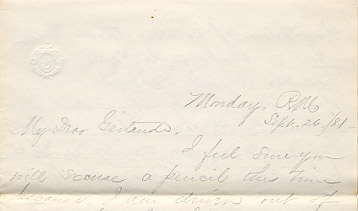 Monday, P.M.
Sept. 26/81
My Dear Gertrude,
I feel sure you
will excuse a pencil this time
because I am driven out of